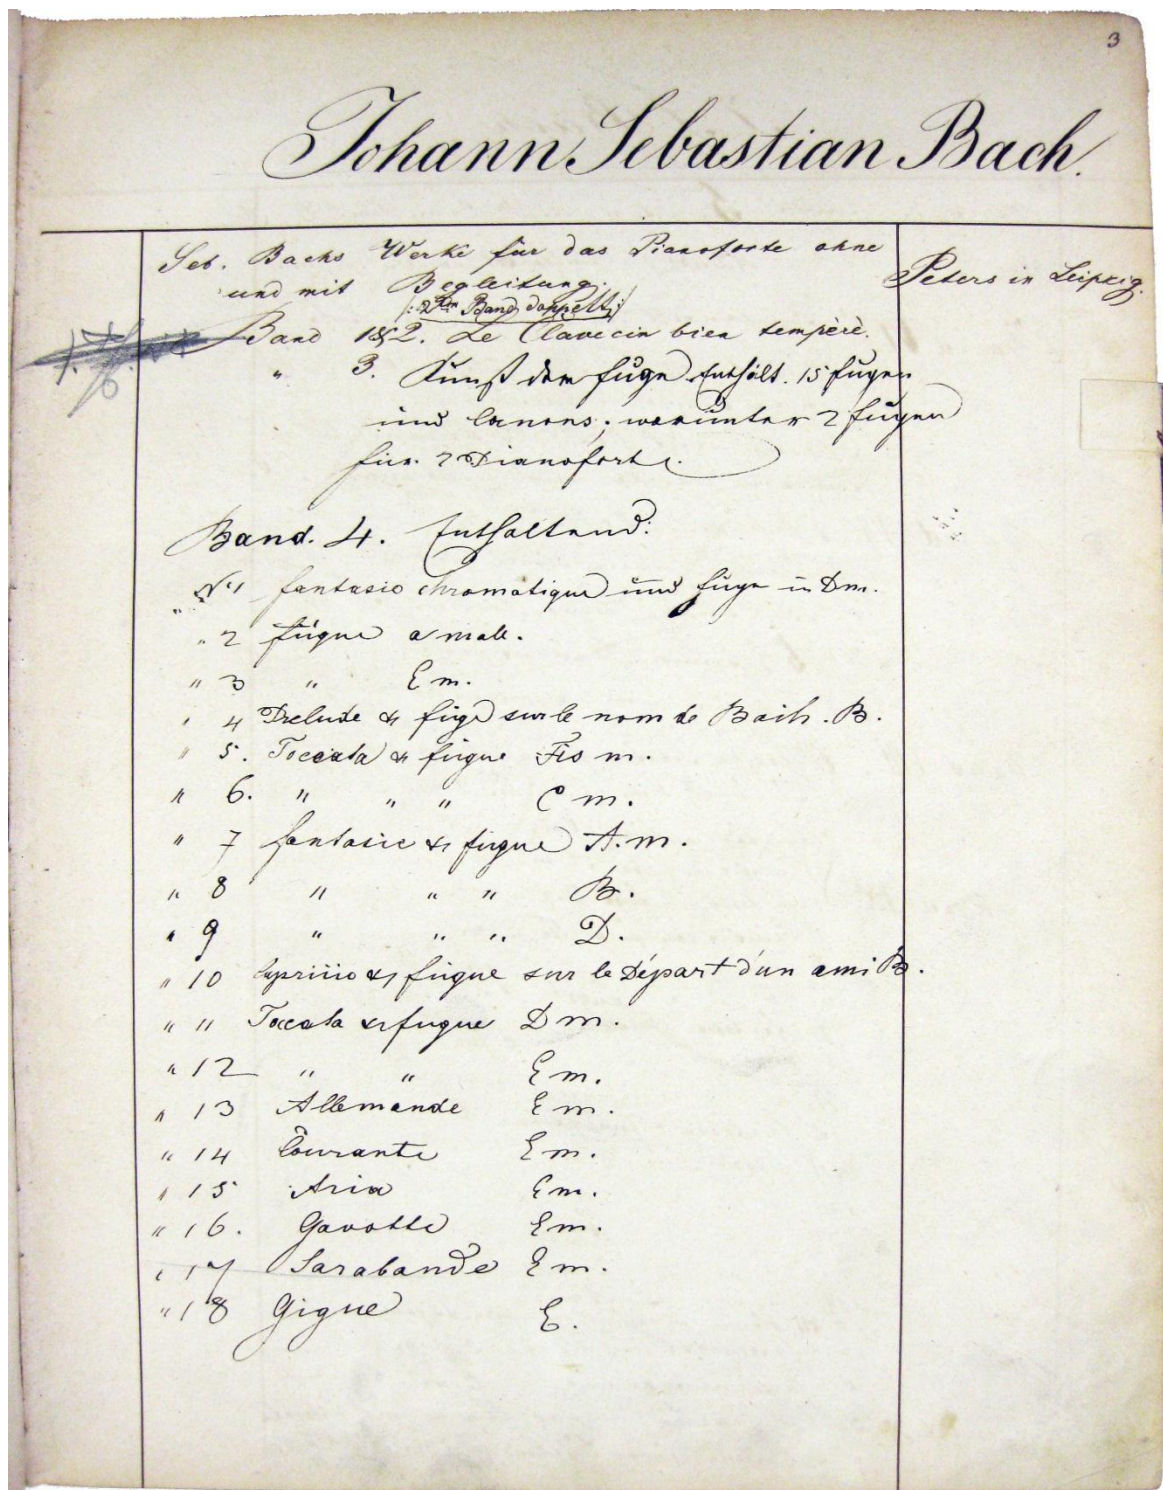 3
Johann Sebastian Bach.
Seb. Bachs Werke für das Pianoforte ohne
und mit Begleitung.
Peters in Leipzig.
/: 2ter Band doppelt :/
Band 1&2. Le Clavecin bien tempèrè.
" 3. Kunst der Fuge Enthält. 15 Fugen
und Canons; worunter 2 Fugen
für 2 Pianoforte.
Band. 4. Enthaltend:
" No 1 fantasie chromatique und Fuge in Dm.
" 2 fugue a moll.
" 3 " Em.
" 4 Prelude & fuge sur le nom de Bach. B.
" 5. Toccata & fugue Fis m.
" 6. " " " C m.
" 7 fantasie & fugue A. m.
" 8 " " " B.
" 9 " " " D.
" 10 Capriccio & fugue sur le Départ d'un ami B.
" 11 Toccata & fugue D m.
" 12 " " E m.
" 13 Allemande E m.
" 14 Courante E m.
" 15 Aria E m.
" 16. Gavotte E m.
" 17 Sarabande E m.
" 18 Gigue E.